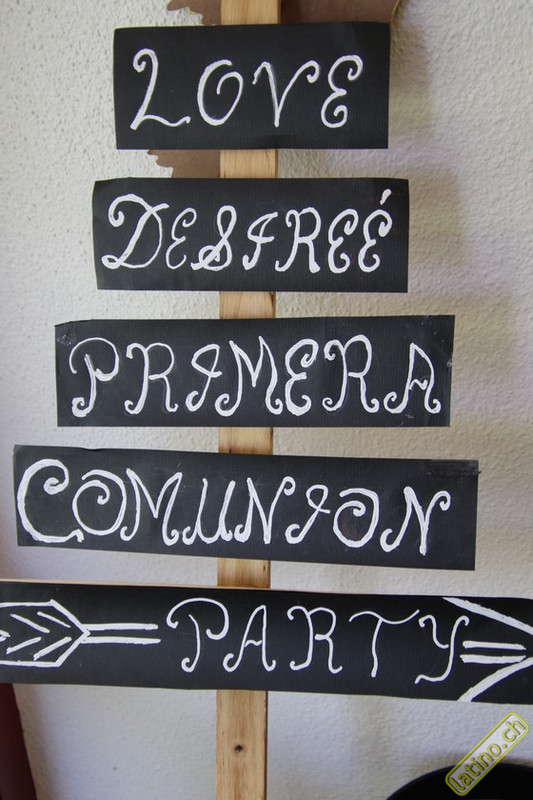 LOVE
DESIREÉ
PRIMERA
COMUNION
PARTY
latino.ch